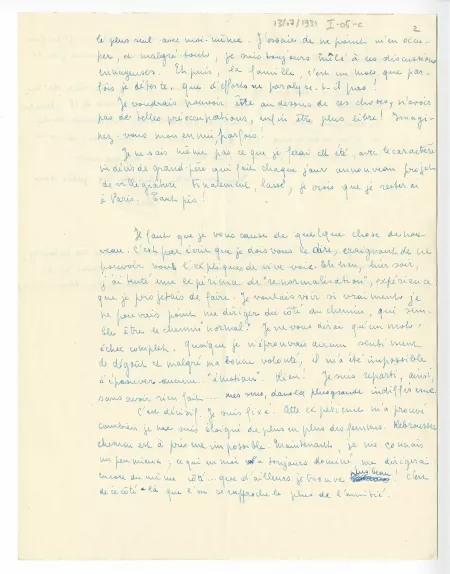 13/07/1931 I-05-c
2
le plus seul avec moi-même. J'essaie de ne point m'en occu-
per, et malgré tout, je suis toujours mêlé à ces discussions
ennuyeuses. Et puis, la famille, c'est un mot que par-
fois je déteste. Que d'efforts ne paralyse-t-il pas!
Je voudrais pouvoir être au dessus de ces choses, n'avoir
pas de telles préoccupations, enfin être plus libre! Imagi-
nez-vous mon ennui, parfois!
Je ne sais même pas ce que je ferai cet été, avec le caractère
indécis de grand-père qui fait chaque jour un nouveau projet
de villégiature. Finalement, lassé, je crois que je resterai
à Paris. Tant pis!
Il faut que je vous cause de quelque chose de nou-
veau. C'est par écrit que je dois vous le dire, craignant de ne
pouvoir vous l'expliquer de vive voix. Eh bien, hier soir,
j'ai tenté une expérience de "renormalisation", expérience
que je projetais de faire. Je voulais voir si vraiment je
ne pouvais point me diriger du côté du chemin, qui sem-
ble être le chemin "normal". Je ne vous dirai qu'un mot:
échec complet. Quoique je n'éprouvais aucun sentiment
de dégoût et malgré ma bonne volonté, il m'a été impossible
d'éprouver aucune "émotion". Rien! Je suis reparti, ainsi,
sans avoir rien fait... dans la plus grande indifférence.
C'est décisif. Je suis fixé. Cette expérience m'a prouvé
combien je me suis éloigné de plus en plus des femmes. Rebrousser
chemin est à présent impossible. Maintenant, je me connais
un peu mieux, ce qui en moi a toujours dominé, me dirigera
encore du même côté... que d'ailleurs je trouve plus beau! C'est
de ce côté-là que l'on se rapproche le plus de l'amitié.